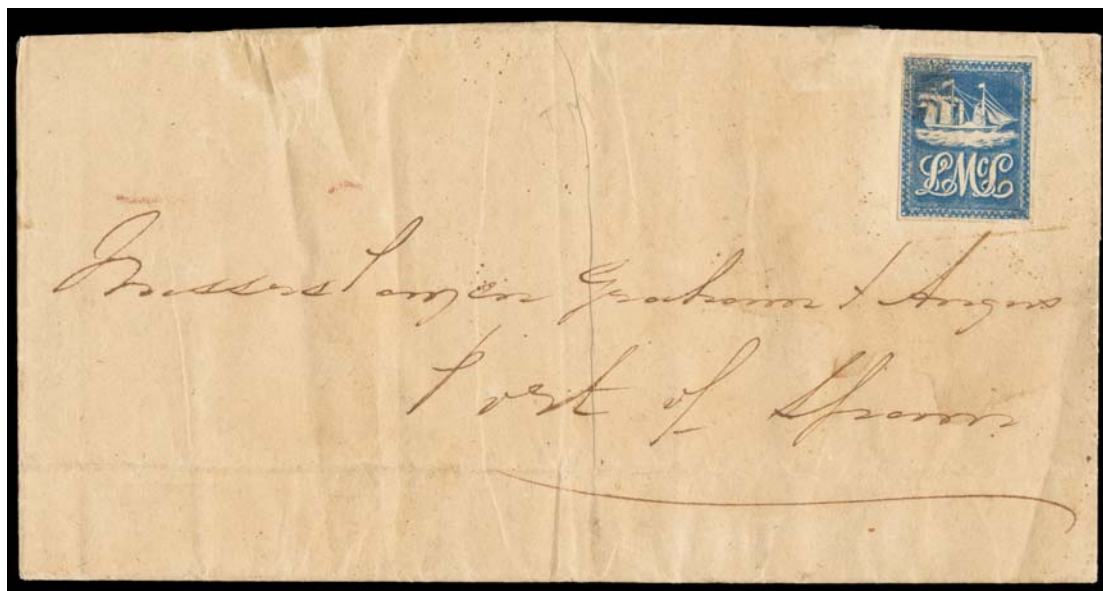 LMcL
Messers Graham & Angus
Port of Spain